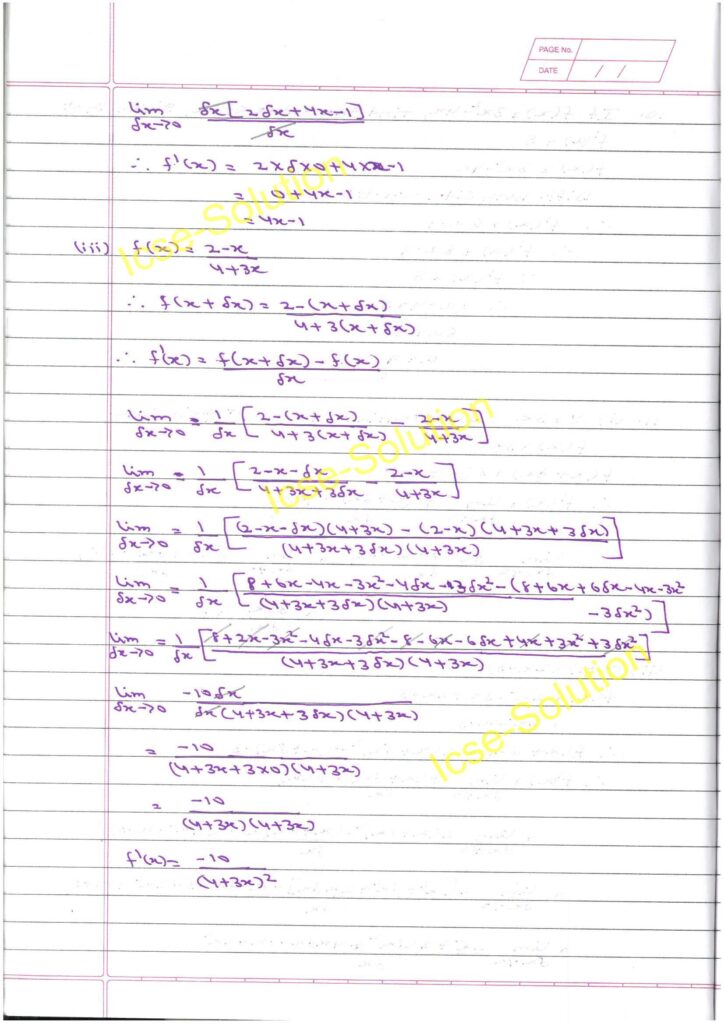 PAGE No.
DATE / /
lim δx→0 δx[2δx+4x-1] / δx
∴ f'(x) = 2×δ×0+4x-1
= 0+4x-1
= 4x-1
(iii) f(x) = 2-x / 4+3x
∴ f(x+δx) = 2-(x+δx) / 4+3(x+δx)
∴ f'(x) = f(x+δx)-f(x) / δx
lim δx→0 = 1/δx [ 2-(x+δx) / 4+3(x+δx) - 2-x / 4+3x ]
lim δx→0 = 1/δx [ 2-x-δx / 4+3x+3δx - 2-x / 4+3x ]
lim δx→0 = 1/δx [ (2-x-δx)(4+3x) - (2-x)(4+3x+3δx) / (4+3x+3δx)(4+3x) ]
lim δx→0 = 1/δx [ 8+6x-4x-3x²-4δx-3δx²-(8+6x+6δx-4x-3x²-3δx²) / (4+3x+3δx)(4+3x) ]
lim δx→0 = 1/δx [ 8+2x-3x²-4δx-3δx²-8-6x-6δx+4x+3x²+3δx² / (4+3x+3δx)(4+3x) ]
lim δx→0 -10δx / δx(4+3x+3δx)(4+3x)
= -10 / (4+3x+3×0)(4+3x)
= -10 / (4+3x)(4+3x)
f'(x) = -10 / (4+3x)²
Icse-Solution
Icse-Solution
Icse-Solution